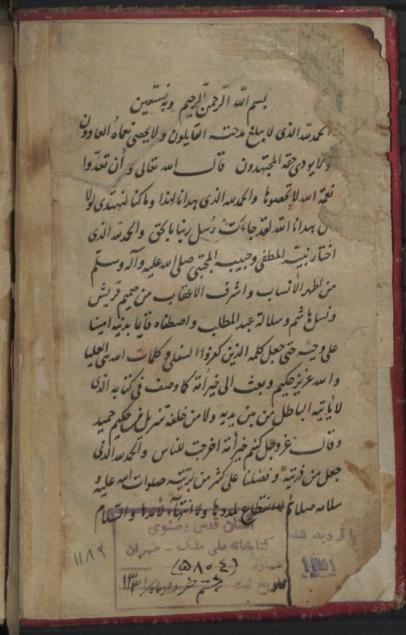 بسم الله الرحمن الرحيم وبه نستعين
الحمد لله الذي لا يبلغ مدحته القايلون ولا يحصي نعماه العادون
ولا يودي حقه المجتهدون قال الله تعالى و ان تعدوا
نعمة الله لا تحصوها والحمد لله الذي هدانا لهذا وما كنا لنهتدي لولا
ان هدانا الله لقد جاءت رسل ربنا بالحق والحمد لله الذي
اختار نبيه المصطفى وحبيبه المجتبى صلى الله عليه وآله وسلم
من اطهر الانساب واشرف الاعقاب من صميم قريش
ونسل هاشم وسلالة عبد المطلب واصطفاه
على وحيه حتى جعل كلمة الذين كفروا السفلى وكلمات الله هي العليا
والله عزيز حكيم وبعث الى خير امة كما وصف في كتابه الذي
لا ياتيه الباطل من بين يديه ولا من خلفه تنزيل من حكيم حميد
وقال عز وجل كنتم خير امة اخرجت للناس والحمد لله الذي
جعل من ذريته وفضلنا على كثير من بريته صلوات الله عليه و
سلامه صلاة لا انقطاع لمددها ولا انتهاء لامدها والسلام
آستان قدس رضوی
کتابخانه ملی ملک - طهران
شماره (۵۸۰۴)
تاریخ ثبت
بازدید شد
۱۱۸۹